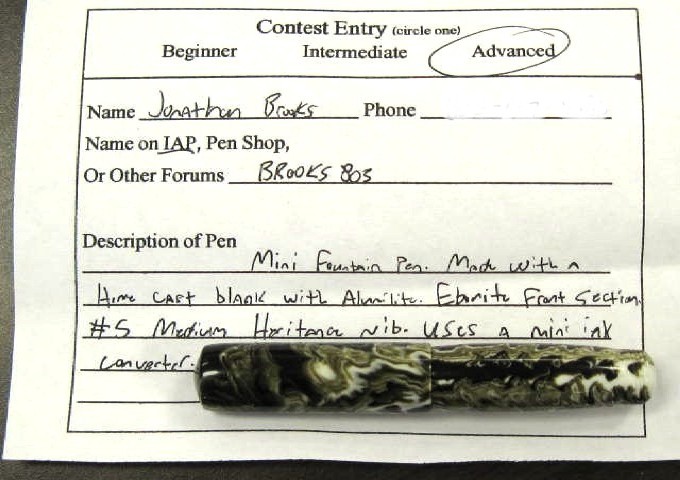 Contest Entry (circle one)
Beginner Intermediate Advanced
Name Jonathan Brooks Phone
Name on IAP, Pen Shop,
Or Other Forums BROOKS 803
Description of Pen
Mini Fountain Pen. Made with a
Home cast blank with Alumilite. Ebonite Front Section.
#5 Medium Heritance Nib. Uses a mini ink
converter.